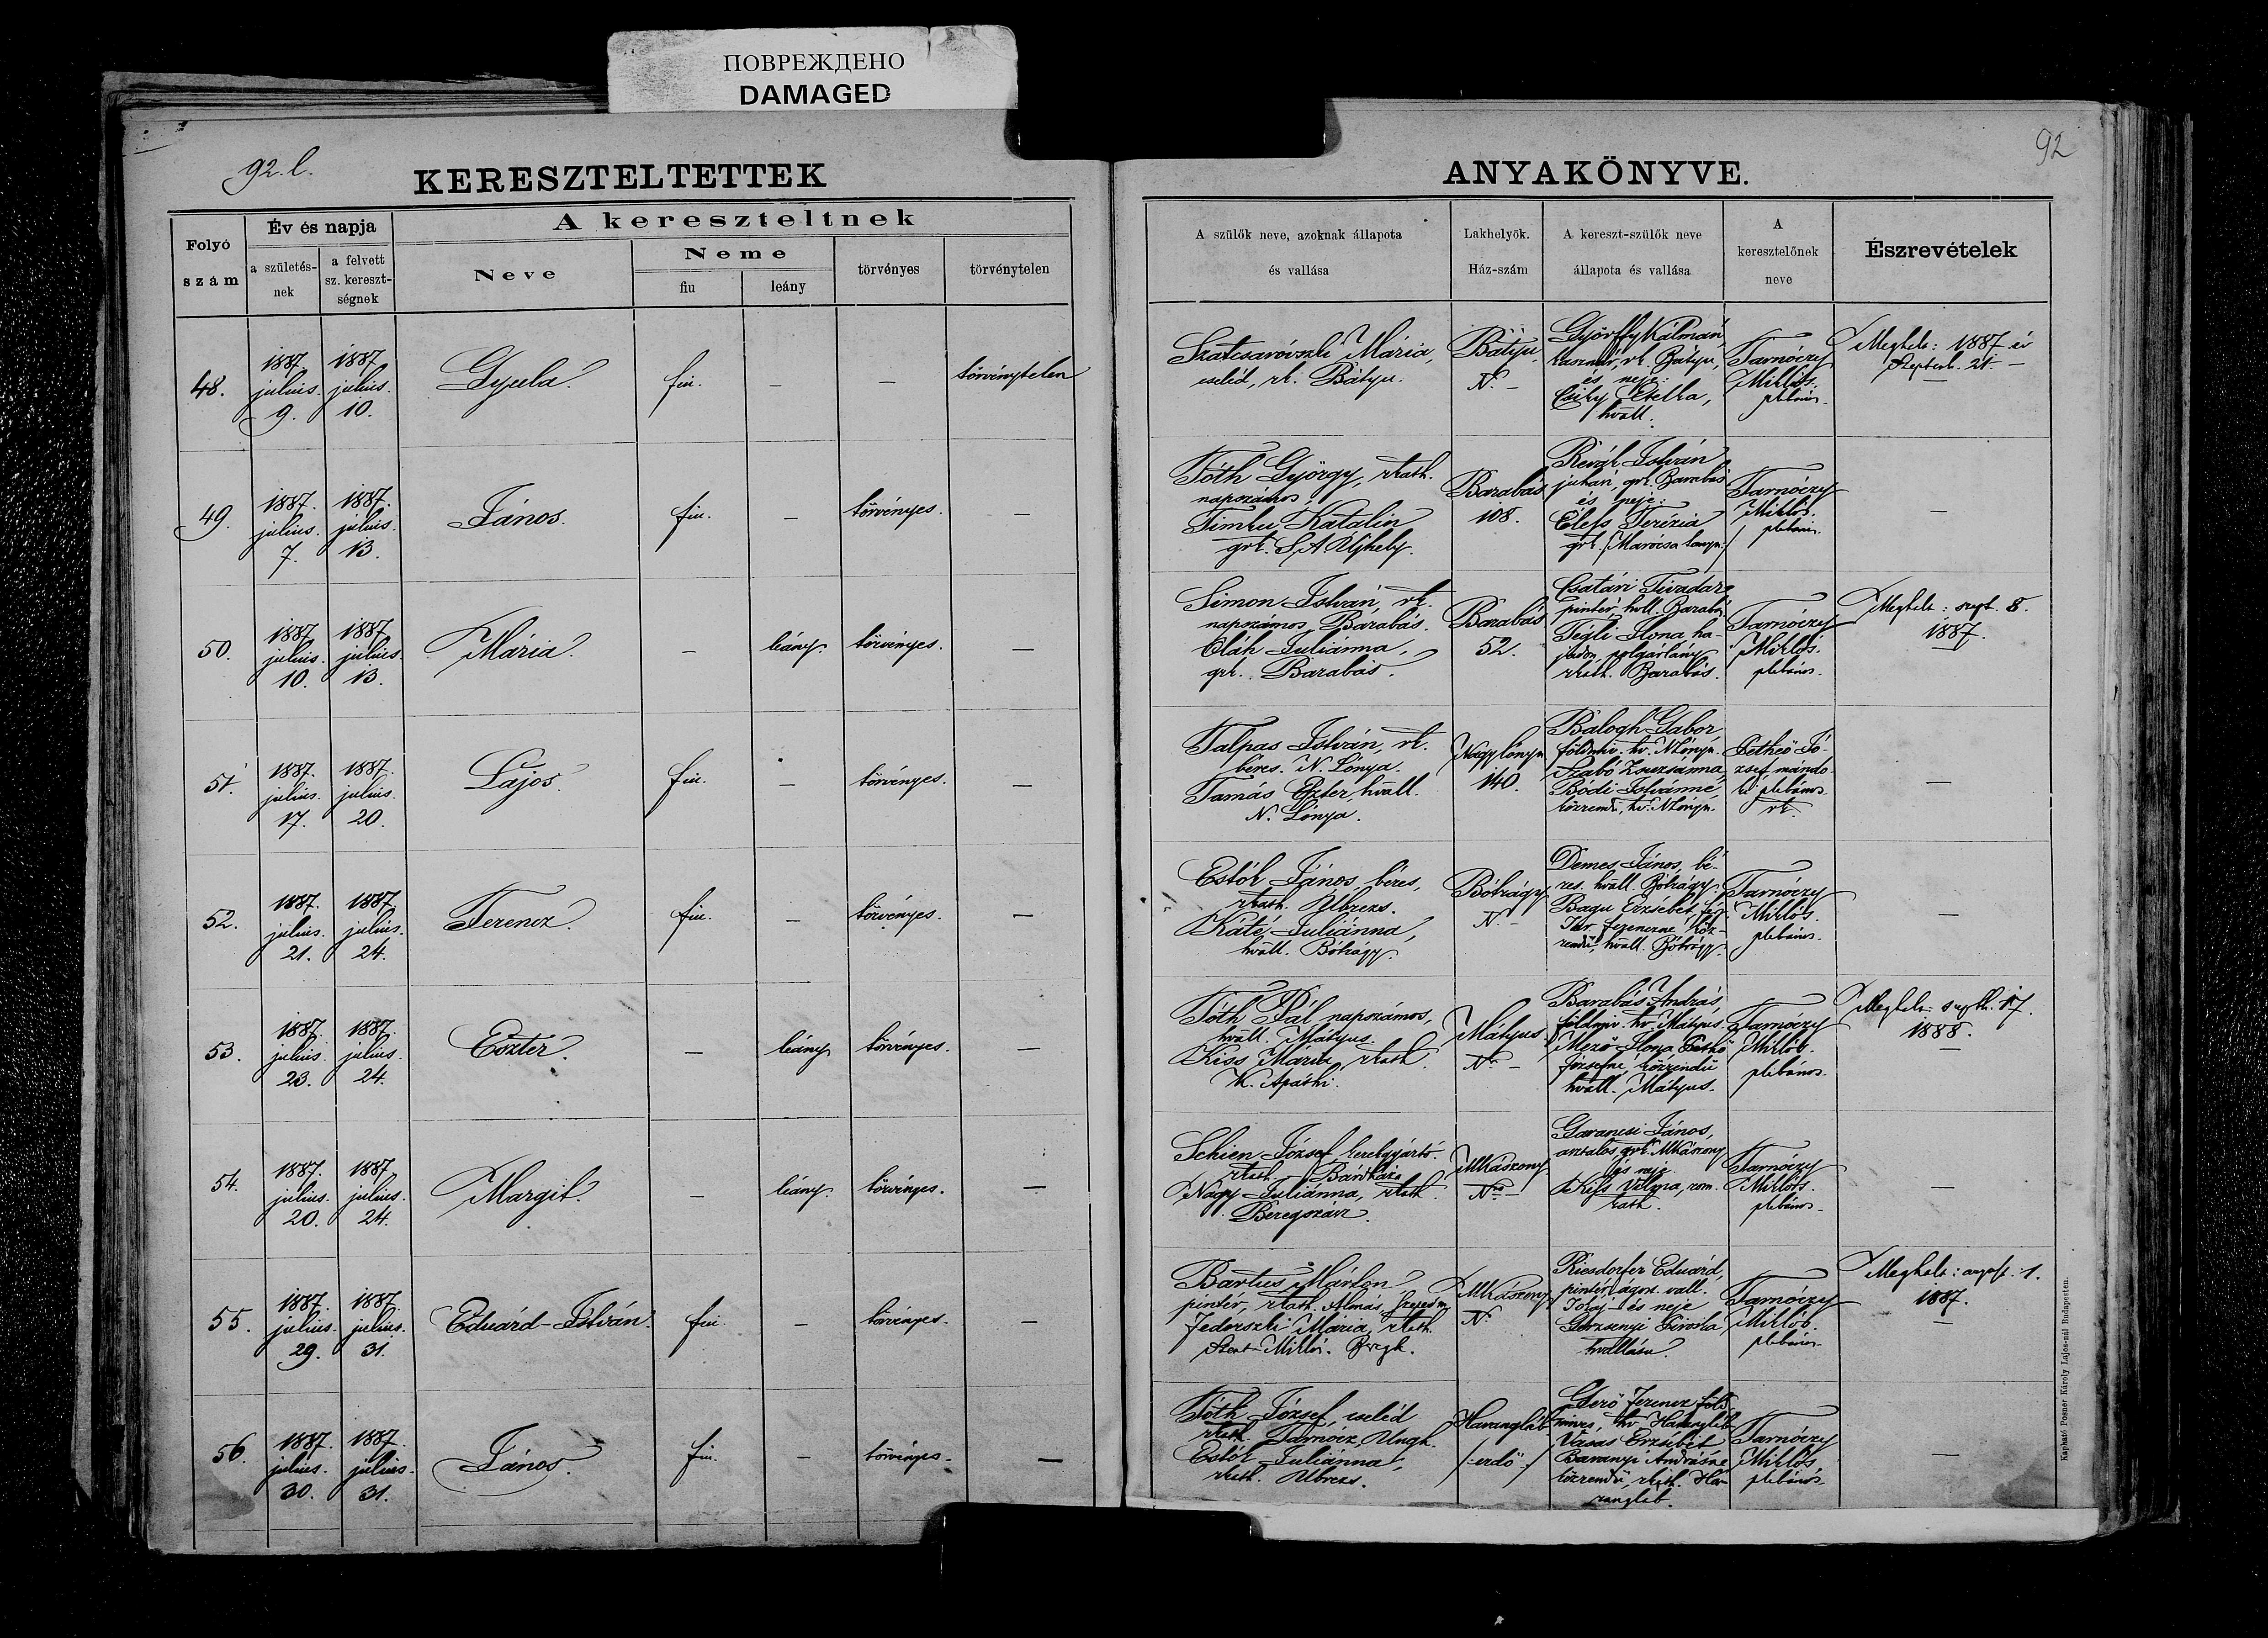 ПОВРЕЖДЕНО
DAMAGED
92. l.
92
KERESZTELTETTEK
ANYAKÖNYVE.
Folyó szám
Év és napja
a születés-
nek
a felvett
sz. kereszt-
ségnek
A kereszteltnek
Neve
Neme
fiu
leány
törvényes
törvénytelen
A szülők neve, azoknak állapota
és vallása
Lakhelyök.
Ház-szám
A kereszt-szülők neve
állapota és vallása
A
keresztelőnek
neve
Észrevételek
48.
1887.
julius.
9.
1887
julius.
10.
Gyula.
fiu.
—
—
törvénytelen
Szatcsarovszki Mária,
cseléd, rk. Bátyu.
Bátyu.
N. –
Györffy Kálmán,
kasznár, rk. Bátyu,
és neje:
Csiky Etelka,
hvall.
Tarnóczy
Miklós.
plebános.
Meghalt: 1887 év
Septemb. 21. —
49.
1887.
julius.
7.
1887.
julius.
13.
János.
fiu.
—
törvényes.
—
Tóth György, rkath.
napszámos,
Timku Katalin
grk. S. A. Ujhely.
Barabás
108.
Révák István
juhász, grk. Barabás
és neje:
Éless Terézia
grk. /Marócsa tanya./
Tarnóczy
Miklós.
plebános.
—
50.
1887.
julius.
10.
1887
julius.
13.
Mária.
—
leány.
törvényes.
—
Simon István, rk.
napszámos, Barabás.
Oláh Juliánna,
grk. Barabás.
Barabás
52.
Csatári Tivadar
pintér, hvll. Barabás
Tégli Ilona ha-
jadon, polgárlány
rkath. Barabás.
Tarnóczy
Miklós.
plebános.
Meghalt: szept. 8.
1887.
51.
1887.
julius.
17.
1887.
julius.
20.
Lajos.
fiu.
—
törvényes.
—
Talpas István, rk.
béres. N. Lónya.
Tamás Eszter, hvall.
N. Lónya.
Nagy Lónya
140.
Balogh Gabor
földmiv. hv. NLónya.
Szabó Zsuzsánna,
Bódi Istvánné,
közrendü, hv. NLónya.
Pethő Jó-
zsef mándo-
ki plebános.
rk.
—
52.
1887.
julius.
21.
1887
julius.
24.
Ferencz.
fiu.
—
törvényes.
—
Estók János béres,
rkath. Ubrezs.
Káté Juliánna,
hvall. Bótrágy.
Bótrágy
N. –
Demes János, bé-
res. hvall. Bótrágy.
Bagu Erzsébet,
Ferenczné köz-
rendü, hvall. Bótrágy.
Tarnóczy
Miklós.
plebános.
—
53.
1887.
julius.
23.
1887.
julius.
24.
Eszter.
—
leány
törvényes.
—
Tóth Pál napszámos,
hvall. Mátyus.
Kiss Mária rkath.
K. Apáthi.
Mátyus
N. –
Barabás András
földmiv. hv. Mátyus.
Mező Ilona Pethő
Józsefné, közrendü
hvall. Mátyus.
Tarnóczy
Miklós.
plébános.
Meghalt: septb. 17.
1888.
54.
1887.
julius.
20.
1887
julius.
24.
Margit.
—
leány.
törvényes.
—
Schien József kerékgyártó.
rkath. Bárdháza
Nagy Juliánna, rkath.
Beregszász.
MKászony
N. –
Garancsi János,
asztalos, grk. MKászony
és neje.
Kiss Vilma, rom.
kath.
Tarnóczy
Miklós.
plebános.
—
55.
1887.
julius.
29.
1887.
julius.
31.
Eduárd-István.
fiu.
—
törvényes.
—
Bartus Márton
pintér, rkath. Almás,
Fedorszki Mária, rkath.
Szent-Miklós. Beregh.
MKászony
N.
Riesdorfer Eduárd,
pintér, ágost. vall.
és neje
Gerzsenyi Piroska,
hvallásu.
Tarnóczy
Miklós.
plebános
Meghalt: august. 1.
1887.
56.
1887.
julius.
30.
1887.
julius.
31.
János.
fiu.
—
törvényes.
—
Tóth József, cseléd
rkath. Tarnócz, Ungh.
Estók Juliánna,
rkath. Ubrezs.
Harangláb
/:erdő:/
Gerő Ferencz föld-
mives, hv. Harangláb
Vásás Erzsébet
Baranyi Andrásné
közrendü, rkath. Ha-
rangláb.
Tarnóczy
Miklós
plebános.
—
Kapható Posner Károly Lajos-nál Budapesten.